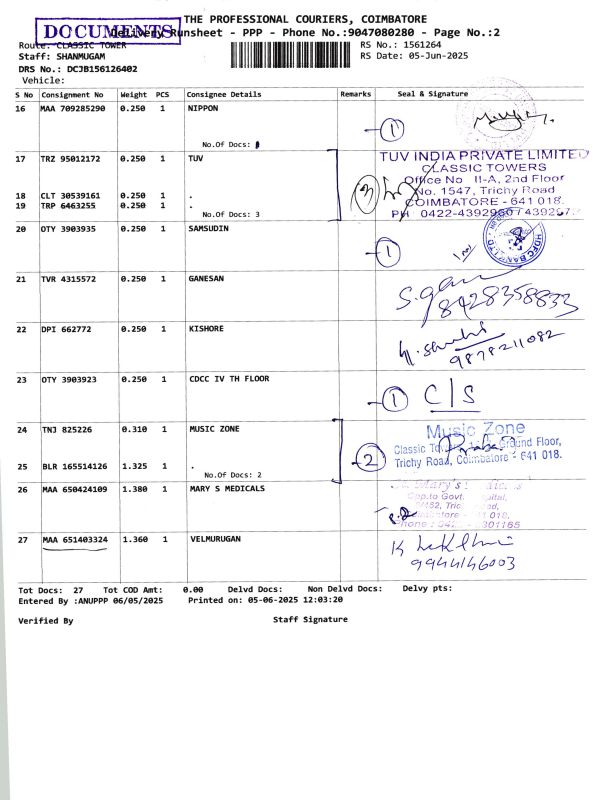 THE PROFESSIONAL COURIERS, COIMBATORE
DOCUMENTS
Delivery Runsheet - PPP - Phone No.:9047080280 - Page No.:2
Route: CLASSIC TOWER
RS No.: 1561264
Staff: SHANMUGAM
RS Date: 05-Jun-2025
DRS No.: DCJB156126402
Vehicle:
S No Consignment No Weight PCS Consignee Details Remarks Seal & Signature
16 MAA 709285290 0.250 1 NIPPON
1
No.Of Docs:
17 TRZ 95012172 0.250 1 TUV
TUV INDIA PRIVATE LIMITED
CLASSIC TOWERS
Office No II-A, 2nd Floor
3
No. 1547, Trichy Road
18 CLT 30539161 0.250 1 .
COIMBATORE - 641 018.
19 TRP 6463255 0.250 1 .
No.Of Docs: 3
PH : 0422-4392960
20 OTY 3903935 0.250 1 SAMSUDIN
HDFC BANK LTD
1
21 TVR 4315572 0.250 1 GANESAN
8428358833
22 DPI 662772 0.250 1 KISHORE
9878211082
23 OTY 3903923 0.250 1 CDCC IV TH FLOOR
1 C/S
24 TNJ 825226 0.310 1 MUSIC ZONE
Music Zone
Ground Floor,
2
Trichy Road, Coimbatore - 641 018.
25 BLR 165514126 1.325 1 .
No.Of Docs: 2
26 MAA 650424109 1.380 1 MARY S MEDICALS
Opp.to Govt.
27 MAA 651403324 1.360 1 VELMURUGAN
9944146003
Tot Docs: 27 Tot COD Amt: 0.00 Delvd Docs: Non Delvd Docs: Delvy pts:
Entered By :ANUPPP 06/05/2025 Printed on: 05-06-2025 12:03:20
Verified By Staff Signature